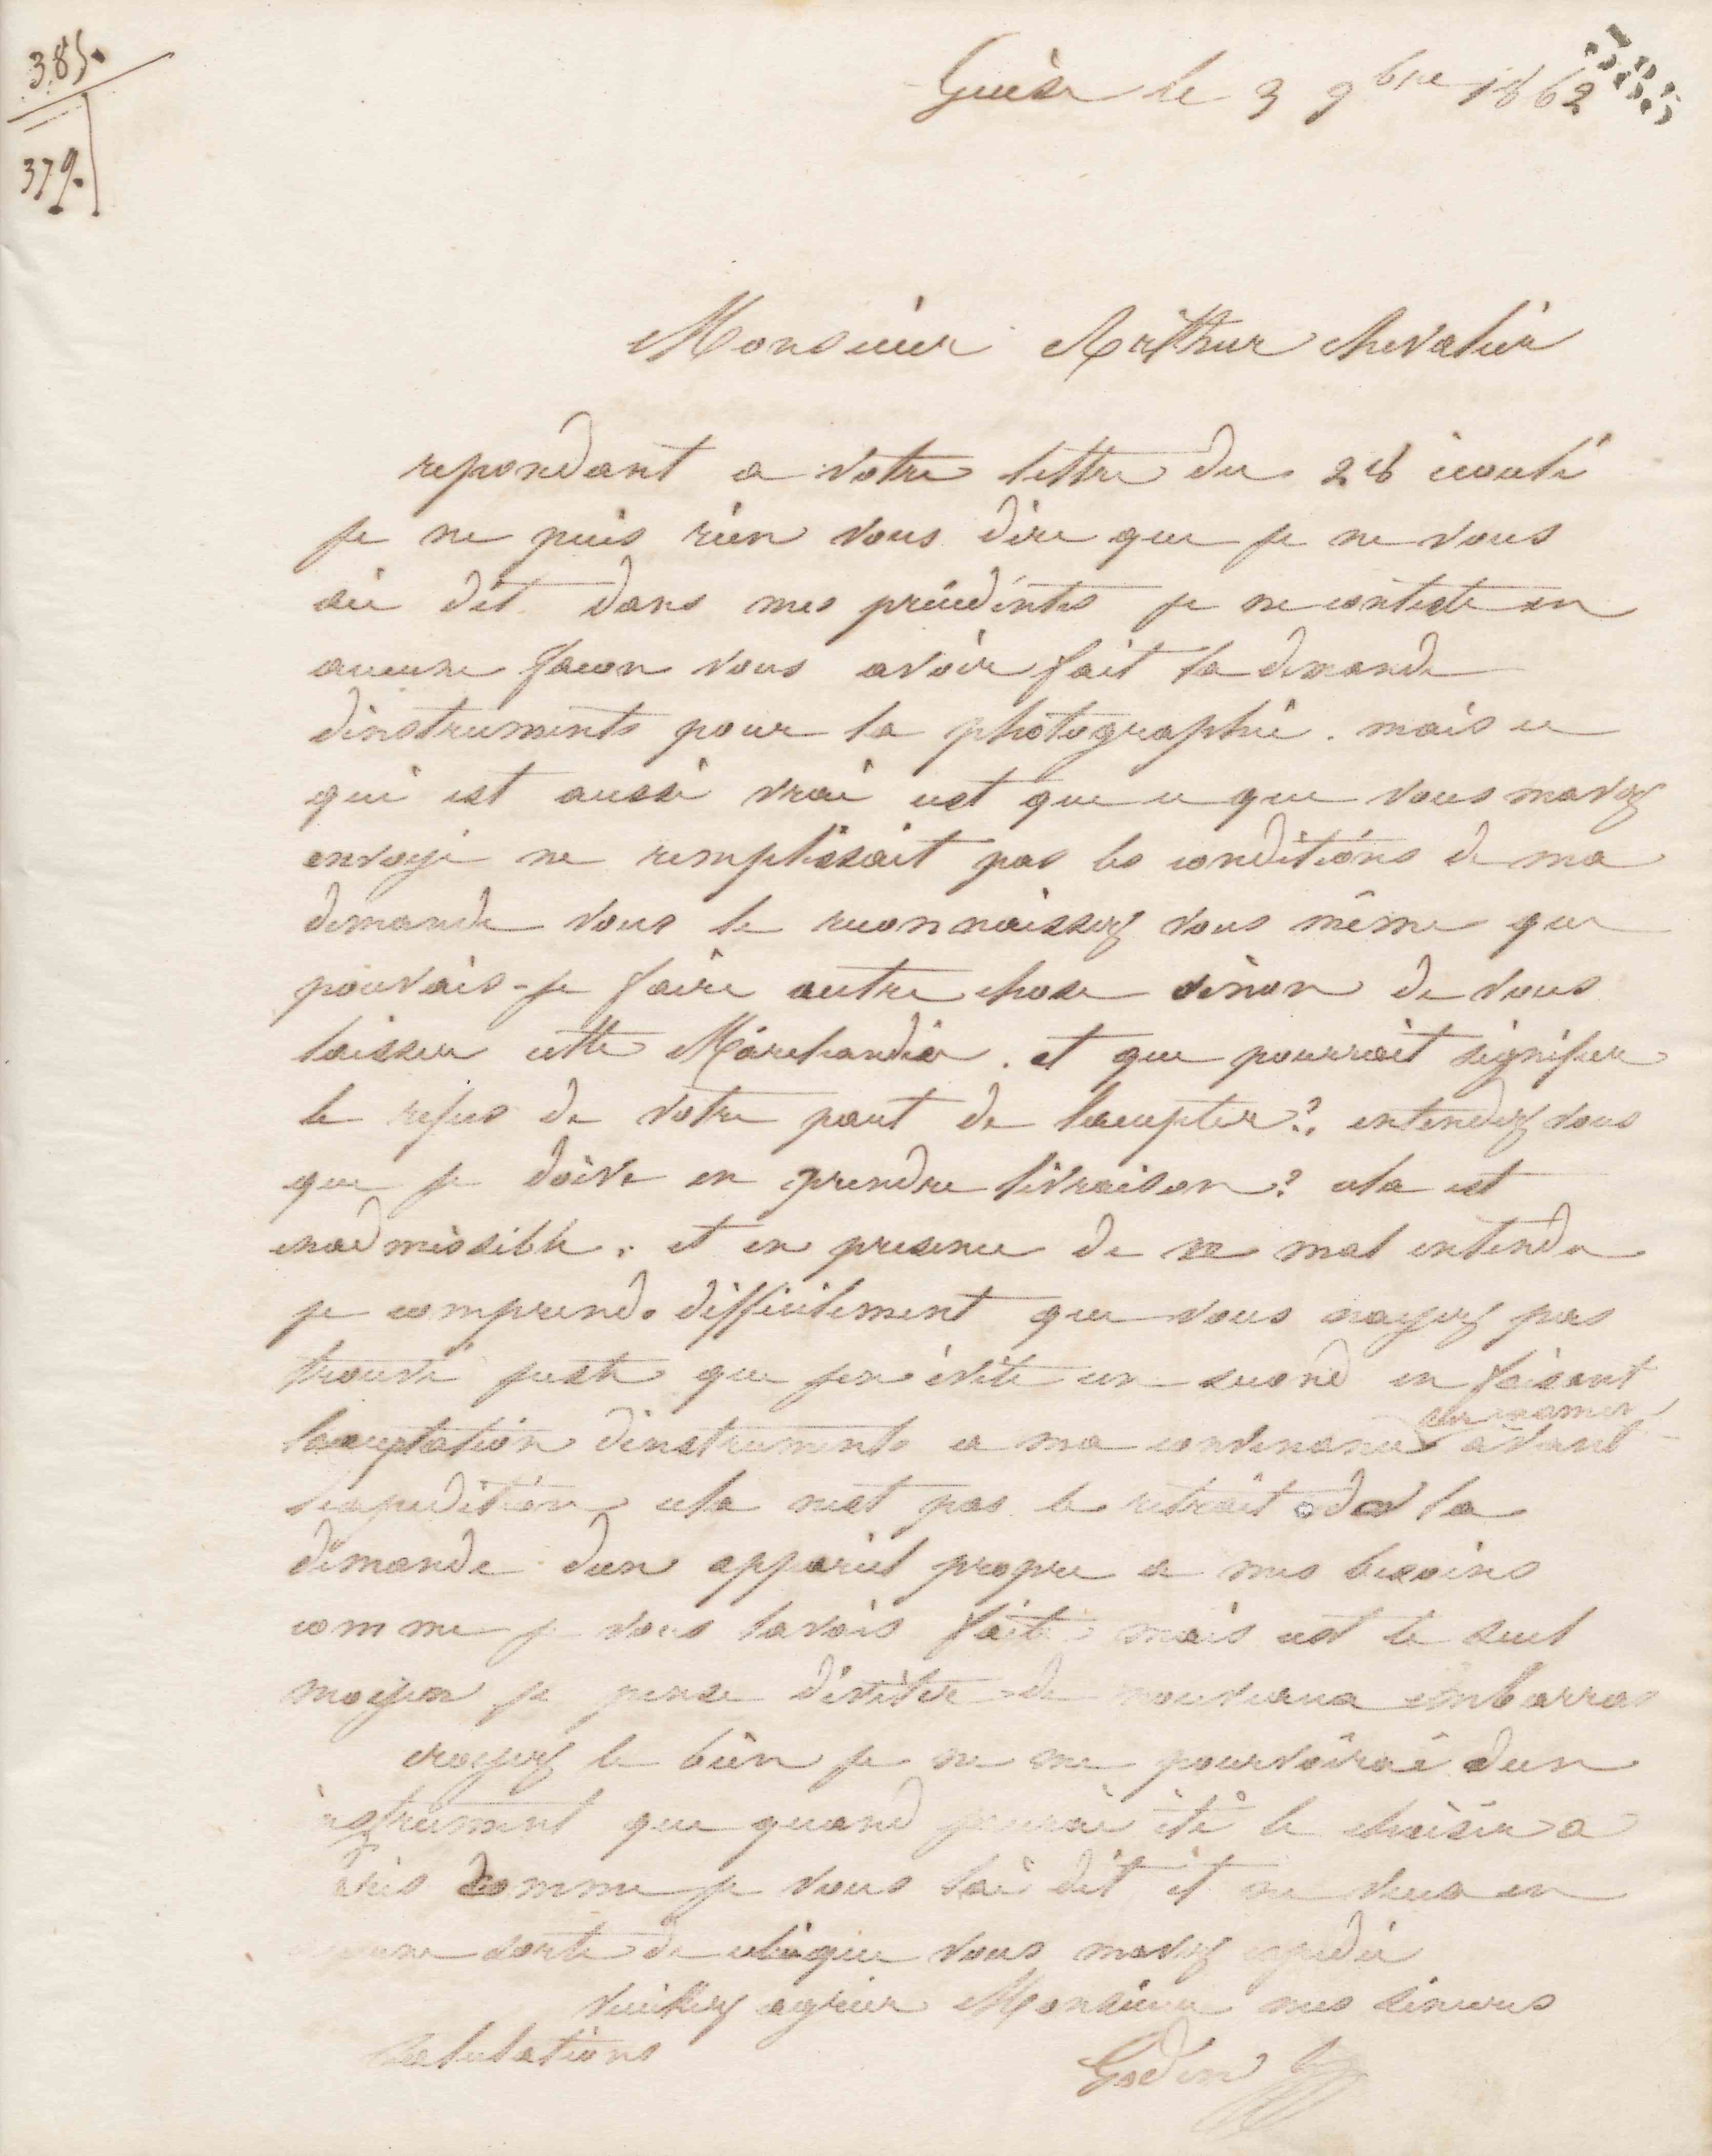 385.
379.
Guise le 3 9bre 1862
Monsieur Arthur chevalier
repondant a votre lettre du 28 écoulé
je ne puis rien vous dire que je ne vous
ai dit dans mes précédentes je ne conteste en
aucune facon vous avoir fait la demande
dinstruments pour la photographie. mais ce
qui est aussi vrai cest que ce que vous mavez
envoyé ne remplissait pas les conditions de ma
demande vous le reconnaissez vous même que
pouvais-je faire autre chose sinon de vous
laisser cette Marchandise. et que pourrait signifier
le refus de votre part de laccepter?. entendez vous
que je doive en prendre livraison? cela est
inadmissible. et en presence de ce mal entendu
je comprends difficilement que vous nayez pas
trouvé juste que jen évite un second en faisant
lacceptation dinstruments a ma convenance avant
lexpedition cela nest pas le retrait de la
demande dun appareil propre a mes besoins
comme je vous lavais faite mais cest le seul
moyen je pense déviter de nouveaux embarras
croyez le bien je ne me pourvoirai dun
instrument que quand jaurai été le choisir a
Paris comme je vous lai dit et ne veux en
aucune sorte de celui que vous mavez expédié
veuillez agréer Monsieur mes sinceres
salutations
Godin